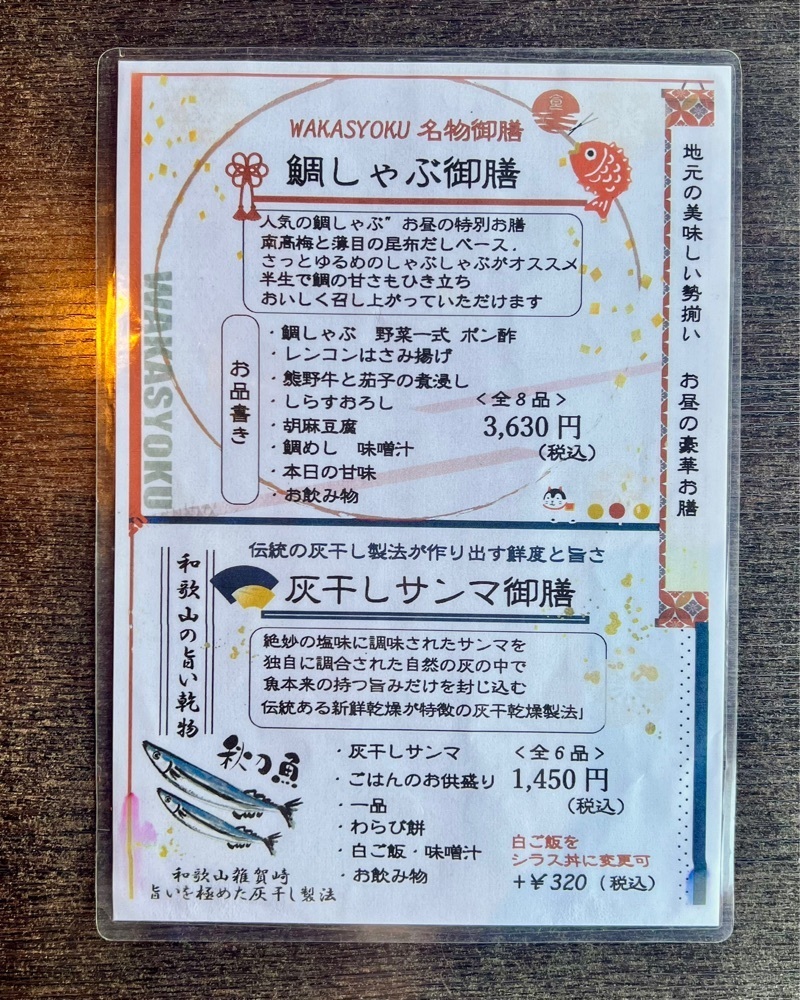 WAKASYOKU 名物御膳
鯛しゃぶ御膳
人気の鯛しゃぶ" お昼の特別お膳
南高梅と薄目の昆布だしベース.
さっとゆるめのしゃぶしゃぶがオススメ
半生で鯛の甘さもひき立ち
おいしく召し上がっていただけます
お品書き
・鯛しゃぶ 野菜一式 ポン酢
・レンコンはさみ揚げ
・熊野牛と茄子の煮浸し
・しらすおろし
・胡麻豆腐
・鯛めし 味噌汁
・本日の甘味
・お飲み物
<全8品>
3,630円
(税込)
地元の美味しい勢揃い お昼の豪華お膳
WAKASYOKU
伝統の灰干し製法が作り出す鮮度と旨さ
灰干しサンマ御膳
和歌山の旨い乾物
絶妙の塩味に調味されたサンマを
独自に調合された自然の灰の中で
魚本来の持つ旨みだけを封じ込む
伝統ある新鮮乾燥が特徴の灰干乾燥製法」
秋刀魚
・灰干しサンマ
・ごはんのお供盛り
・一品
・わらび餅
・白ご飯・味噌汁
・お飲み物
<全6品>
1,450円
(税込)
白ご飯を
シラス丼に変更可
+¥320(税込)
和歌山雑賀崎
旨いを極めた灰干し製法